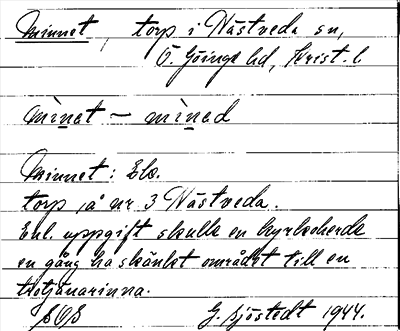 Minnet, torp i Nästveda sn,
Ö. Göinge hd, Krist. l
mìnet – mìned
Minnet: Elo.
torp å nr 3 Nästveda.
Enl. uppgift skulle en kyrkoherde
en gång ha skänkt området till en
trotjänarinna.
G. Sjöstedt 1944.